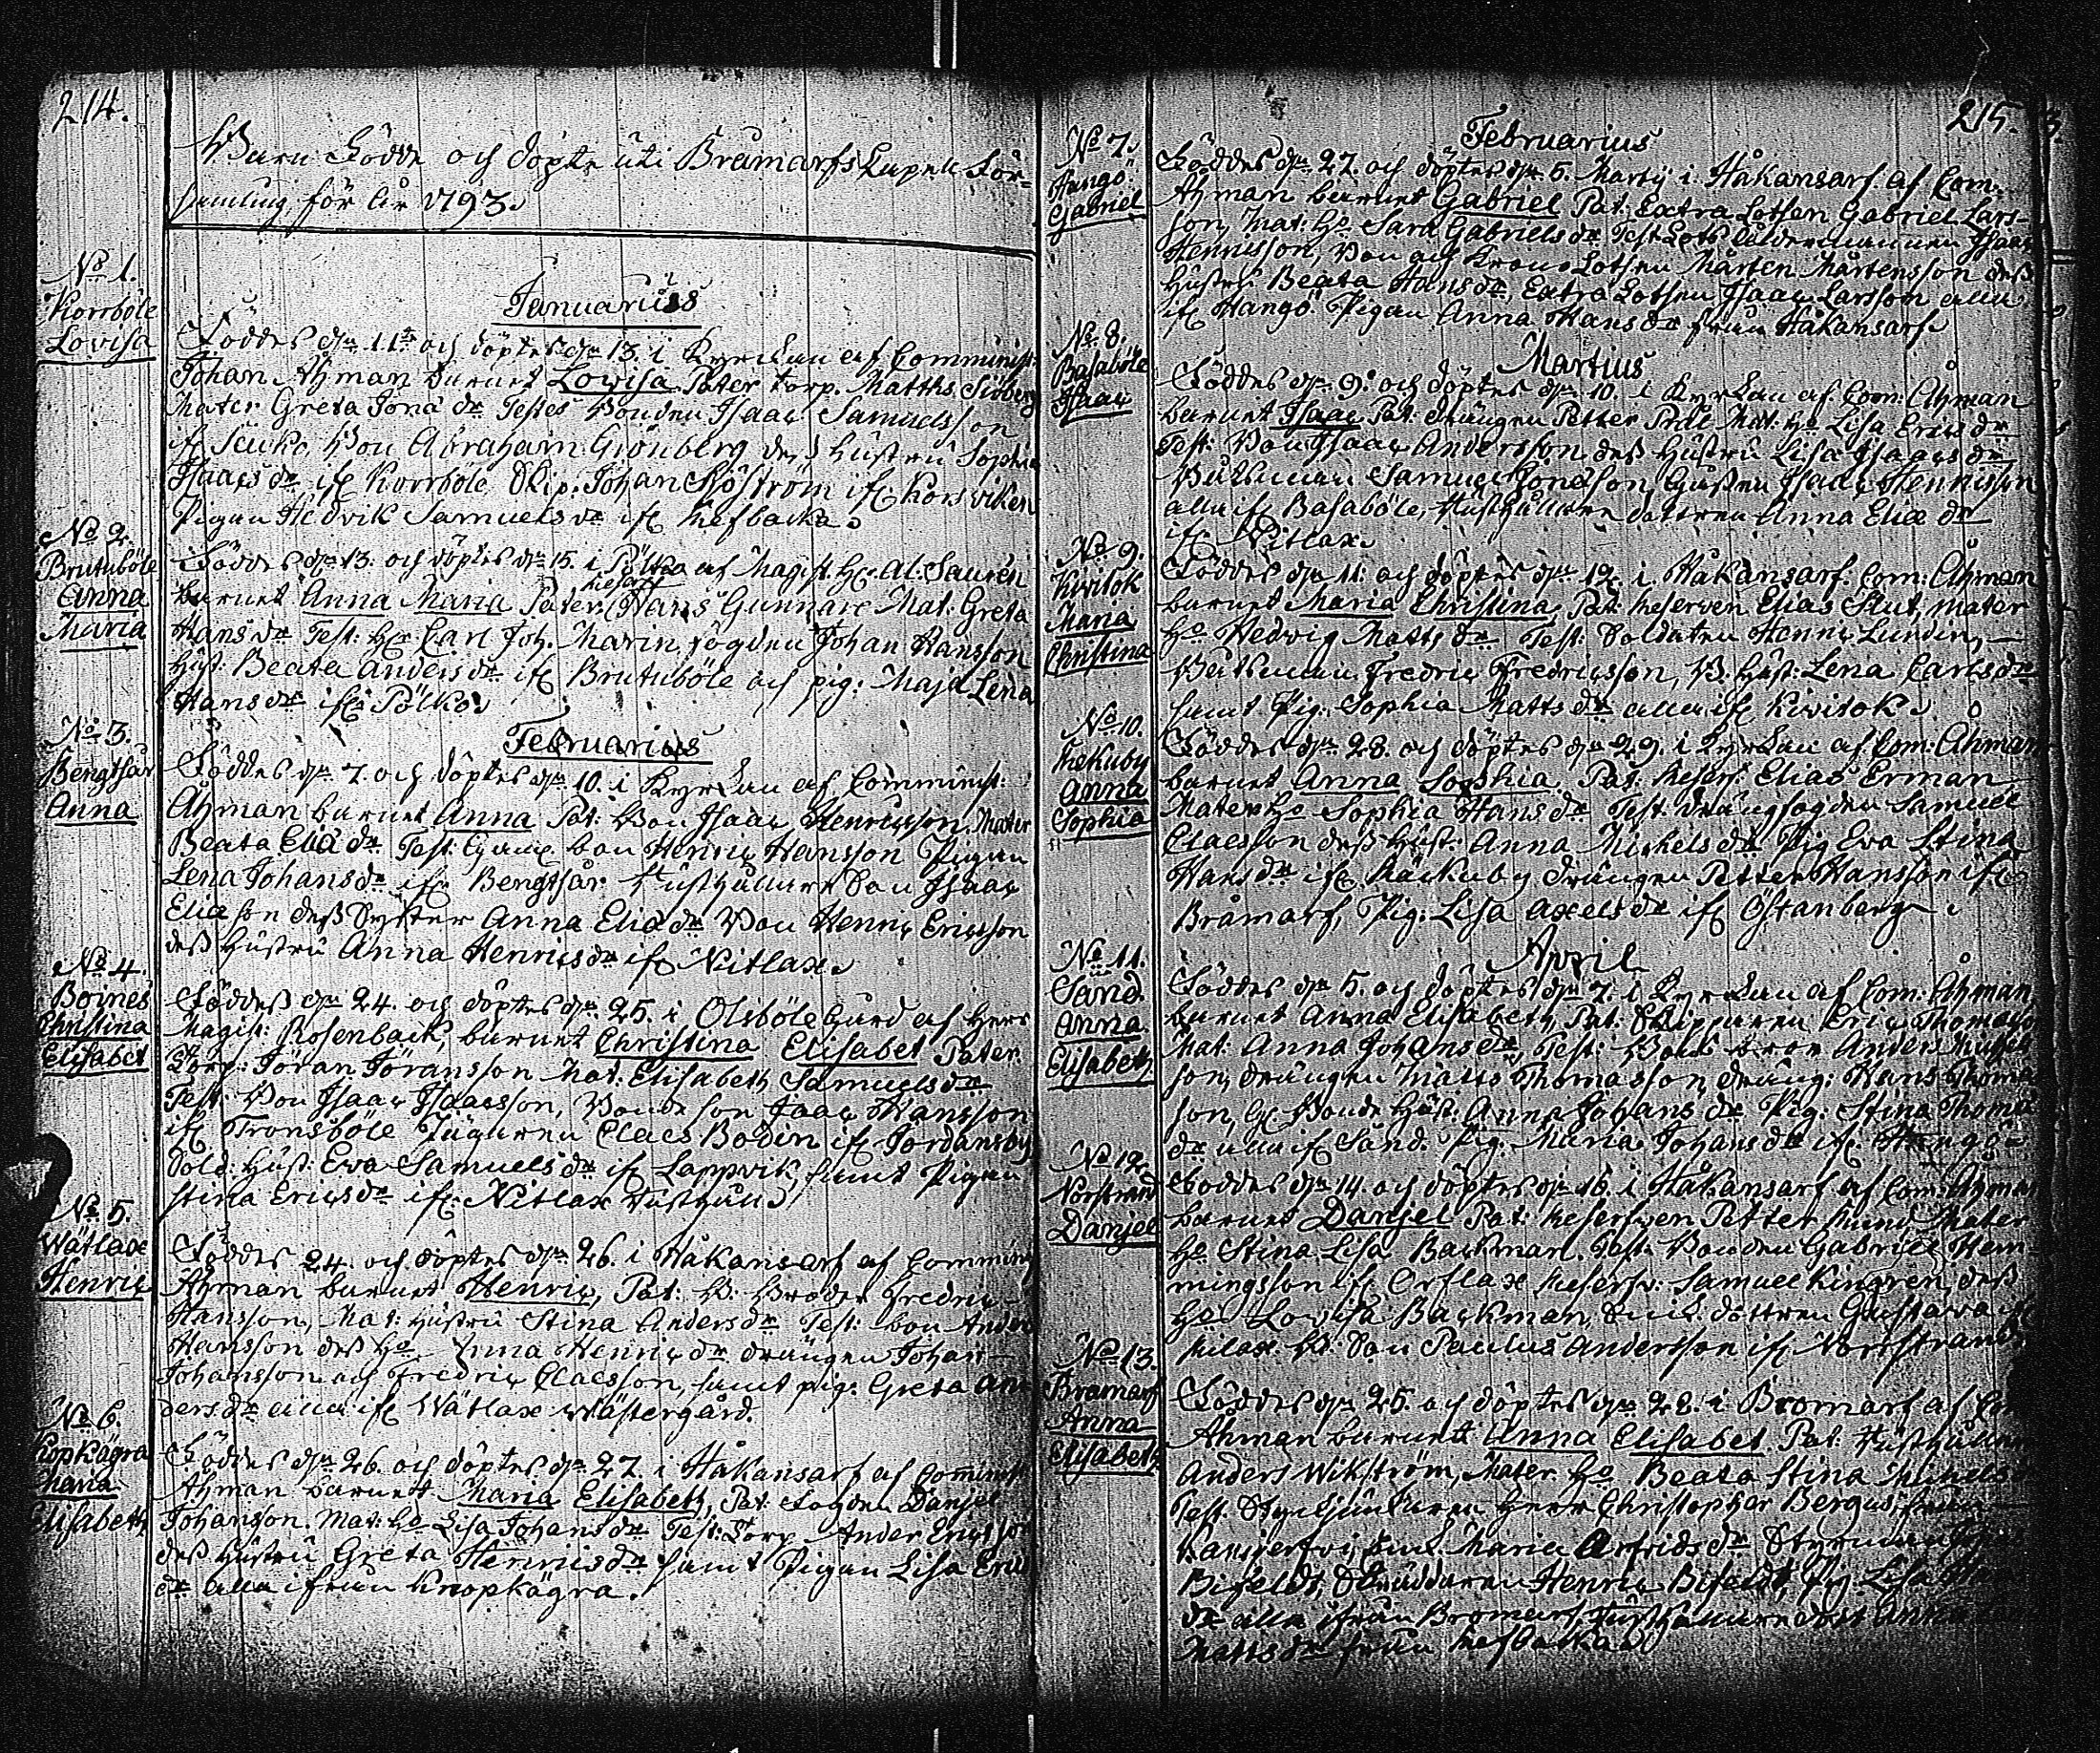 214.
Barn Födde och döpte uti Bråmarfs Kapell För-
samling för år 1793.
Januarius
No 1.
Korrböle
Lovisa
Föddes dn 11te och döptes dn 13. i Kyrckan af Comminist:
Johan Åhman barnet Lovisa Pater torp. Matths Siöberg
Mater Greta Jona dr Testes Bonden Isaac Samuelsson
if. Bon Abraham Grönberg dess hustru Sophia
Isaacs dr if. Korrböle Skip: Johan Sjöström if. Korsviken
Pigan Hedvik Samuels dr if. Refbacka.
No 2.
Brutuböle
Anna
Maria
Föddes dn 13. och döptes dn 15. i Pölkö af Magist. Hr Al: Sauren
barnet Anna Maria Pater Hans Gunnare Mat: Greta
Hans dr Test: Hr Carl Joh. Marin, fogden Johan Hansson
Hust: Beata Anders dr if. Brutuböle och pig: Maja Lena
Hans dr if: Pölkö.
Februarius
No 3.
Bengtsår
Anna
Föddes dn 7. och döptes dn 10. i Kyrckan af Comminist:
Åhman barnet Anna Pat: Bon Isaac Henricsson, Mater
Beata Eliæ dr Test: Bon Henric Hansson Pigan
Lena Johans dr if. Bengtsår Husthållare Son Isaac
Eliæ son dess Syster Anna Eliæ dr Bon Henric Ericsson
dess hustru Anna Henrics dr if. Nitlax.
No 4.
Boines
Christina
Elisabet
Föddes dn 24. och döptes dn 25. i Olsböle Gård af Herr
Magist: Rosenback, barnet Christina Elisabet Pater
Torp: Jöran Jöransson Mat: Elisabeth Samuels dr
Test: Bon Isaac Isaacsson, Bonde son Isaac Hansson
if. Tronsböle Jägaren Claes Bodin if. Jordansby,
Sold: Hust: Eva Samuels dr if. Lappvik, samt Pigan
Stina Erics dr if. Nitlax Husthåll.
No 5.
Wätlax
Henric
Föddes 24. och döptes dn 26. i Håkansarf af Comminist:
Åhman barnet Henric, Pat: B: Broder Fredric
Hansson, Mat: hustru Stina Anders dr Test: Bon Anders
Hansson dess Ho Anna Henrics dr drängen Johan
Johansson och Fredric Claesson, samt pig: Greta An-
ders dr alla if. Wätlax Wästergård.
No 6.
Kopkägra
Maria
Elisabeth
Föddes dn 26. och döptes dn 27. i Håkansarf af Comminist:
Åhman barnet Maria Elisabeth, Pat: Bonden Danjel
Johansson. Mat: Ho Lisa Johans dr Test: Torp Ander Ericsson
dess hustru Greta Henrics dr samt Pigan Lisa Erics
dr alla ifrån Knopkägra.
215.
Februarius
No 7.
Hangö
Gabriel
Föddes dn 27. och döptes dn 5. Martij i Håkansarf af Com.
Åhman barnet Gabriel Pat: Extra Lotsen Gabriel Lars-
son, Mat: Ho Sara Gabriels dr Test Lots Åldermannen Isaac
Henricsson, Son och Krono Lotsen Mårten Mårtensson dess
hustru Beata Hans dr, Extra Lotsen Isaac Larsson alla
if. Hangö Pigan Anna Hans dr från Håkansarf.
Martius
No 8.
Basaböle
Isaac
Föddes dn 9. och döptes dn 10. i Kyrckan af Com: Åhman
barnet Isaac Pat: drängen Petter Mat: Ho Lisa Erics dr
Test: Bon Isaac Andersson dess hustru Lisa Isaacs dr
Båtsman Samuel Gustav Isaac Henricsson
alla if. Basaböle, Husthållare dottren Anna Eliæ dr
if. Nitlax.
No 9.
Kivitok
Maria
Christina
Föddes dn 11. och döptes dn 12. i Håkansarf. Com: Åhman
barnet Maria Christina, Pat: Reserven Elias Slut, Mater
Ho Hedvig Matts dr Test: Soldaten Henric Lundin,
Båtsman Fredric Fredricsson, B. hust: Lena Carls dr
samt Pig. Sophia Matts dr alla if. Kivitok.
No 10.
Rekuby
Anna
Sophia
Föddes dn 28. och döptes dn 29. i Kyrckan af Com: Åhman
barnet Anna Sophia. Pat: Reserf: Elias Erman
Mater Ho Sophia Hans dr Test: drängfogden Samuel
Claesson dess hust: Anna Michels dr Pig Eva Stina
Hans dr if. Räckuby drängen Petter Hansson if.
Bråmarf, Pig: Lisa Axels dr if. Östanberg.
April
No 11.
Sand.
Anna
Elisabeth
Föddes dn 5. och döptes dn 7. i Kyrckan af Com. Åhman
barnet Anna Elisabeth, Pat: Skipparen Eric Thomasson
Mat: Anna Johans dr Test: Anders
son, drängen Matts Thomasson, dräng: Hans Thoma-
son, Bonde Hust: Anna Johans dr Pig: Stina Thomæ
dr alla if. Sand. Pig. Maria Johans dr if. Hangö
No 12.
Norstrand
Danjel
Föddes dn 14. och döptes dn 16. i Håkansarf af Com. Åhman
barnet Danjel Pat: Reserfven Petter Mater
Ho Stina Lisa Backman. Test: Bonden Gabriel Hem-
mingsson if. Orflax Reserfv: Samuel Kingren, dess
Ho Lovisa Backman, dottren Gustava if.
B: Son Paulus Andersson if. Norrstrand.
No 13.
Bramarf
Anna
Elisabeth
Föddes dn 25. och döptes dn 28. i Bromarf af Com
Åhman barnet Anna Elisabet. Pat: Husthållare
Anders Wikström, Mater Ho Beata Stina Mikels dr
Test. Herr Christopher Bergus från
Maria Arfvids dr Styrman
Bifeldt, Skräddaren Henric Bifeldt, Pig Lisa
dr alla ifrån Bromarf, Husthållare Anna
Matts dr från Refbacka.